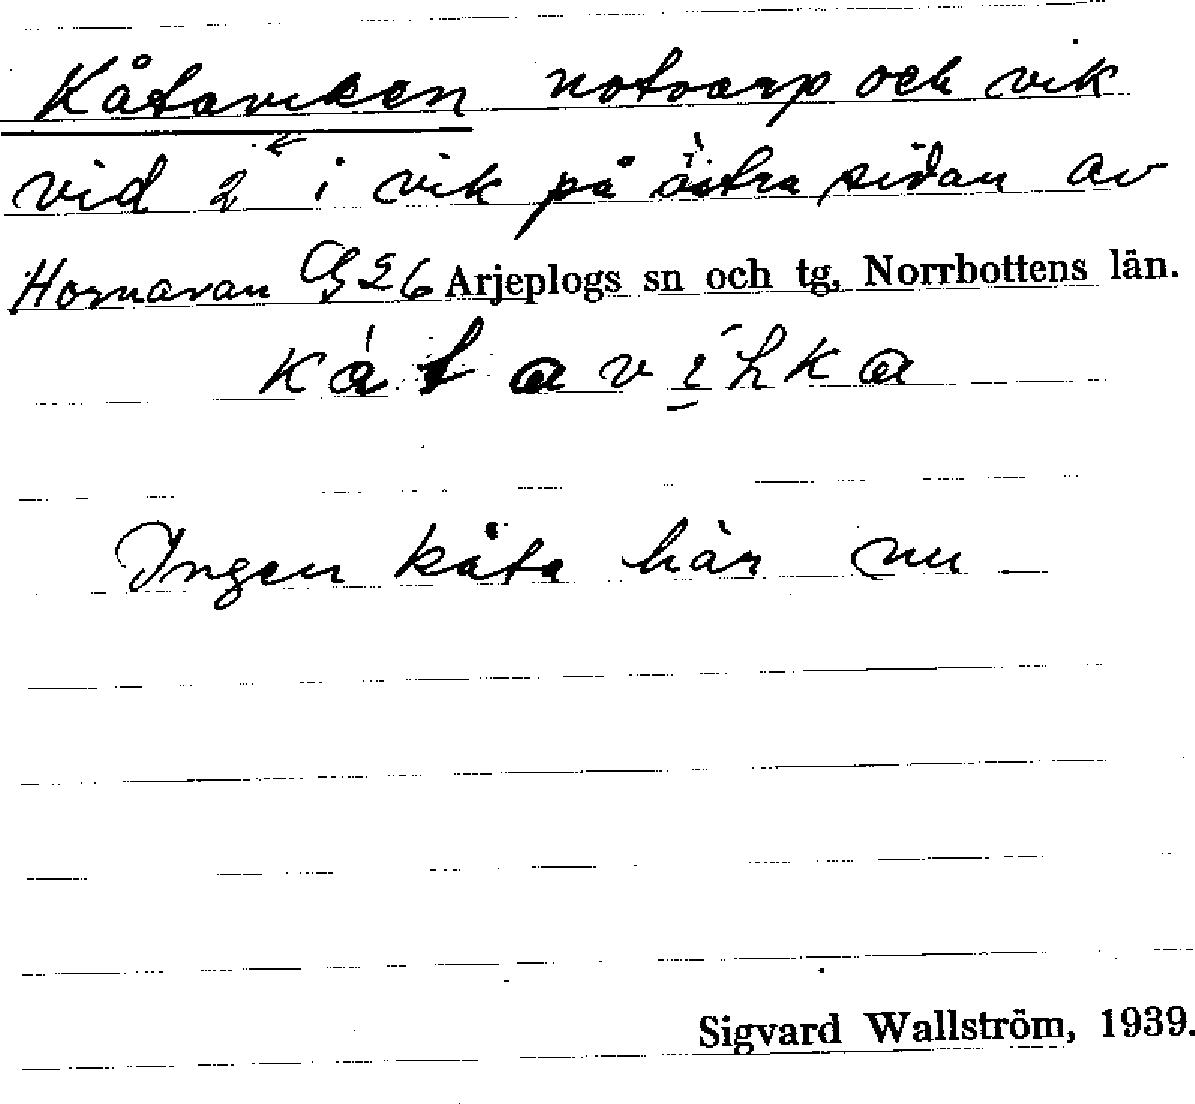 Kåtaviken notvarp och vik
vid 2 i vik på östra sidan av
Hornavan Arjeplogs sn och tg, Norrbottens län.
Ingen kåta här nu
Sigvard Wallström, 1939.